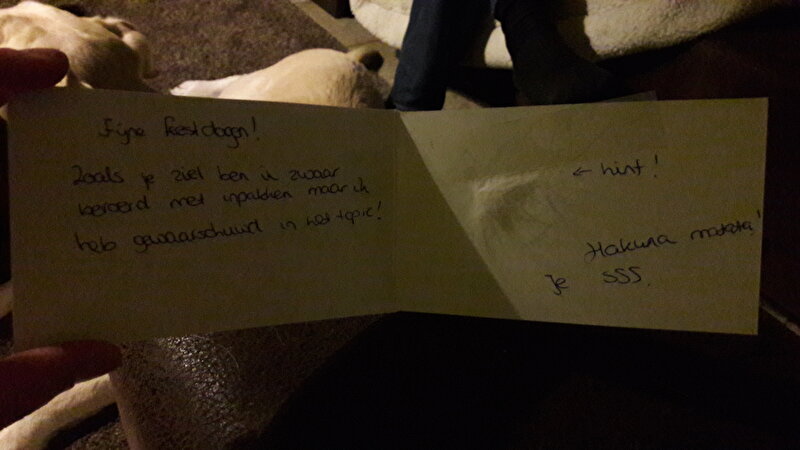 Fijne feestdagen!
Zoals je ziet ben ik zwaar
beroerd met inpakken maar ik
heb gewaarschuwd in het topic!
← hint!
Hakuna matata!
Je SSS.